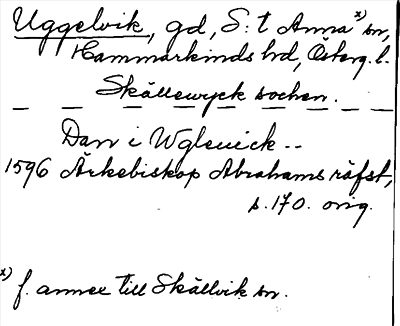 Uggelvik, gd, S:t Anna x) sn,
Hammarkinds hd, Österg. l.
Skällewyck sochen.
Dan i Wglewick..
1596 Ärkebiskop Abrahams räfst,
s. 170. orig.
x) f. annex till Skällvik sn.